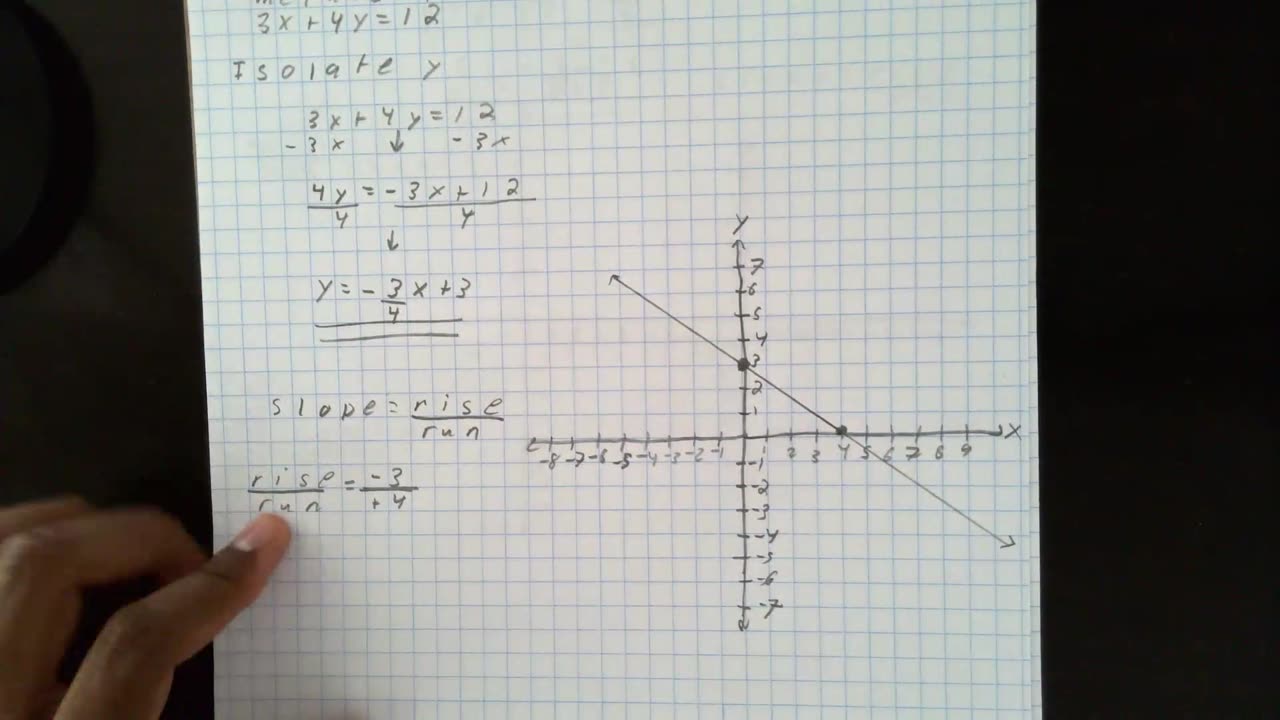 3x+4y=12
Isolate y
3x+4y=12
-3x ↓ -3x
4y = -3x+12
4 4
↓
y = -3/4 x + 3
slope = rise/run
rise/run = -3/+4
Y
7
6
5
4
3
2
1
-8 -7 -6 -5 -4 -3 -2 -1 2 3 4 5 6 7 8 9 X
-1
-2
-3
-4
-5
-6
-7